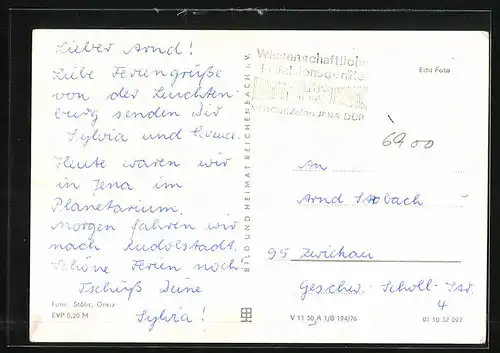 Lieber Arnd!
Liebe Feriengrüße
von der Leuchten-
burg senden Dir
Sylvia und
Heute waren wir
in Jena im
Planetarium.
Morgen fahren wir
nach Rudolstadt.
Schöne Ferien noch
Tschüß Deine
Sylvia!
Foto: Stöhr, Greiz
EVP 0,20 M
BILD UND HEIMAT REICHENBACH i. V.
Wissenschaftliche
Präzisionsgeräte
JENA DDR
Echt Foto
6900
An
Arnd
95 Zwickau
Geschw.-Scholl-Str.
4
V 11 50 A 1/B 194/76
01 10 32 092